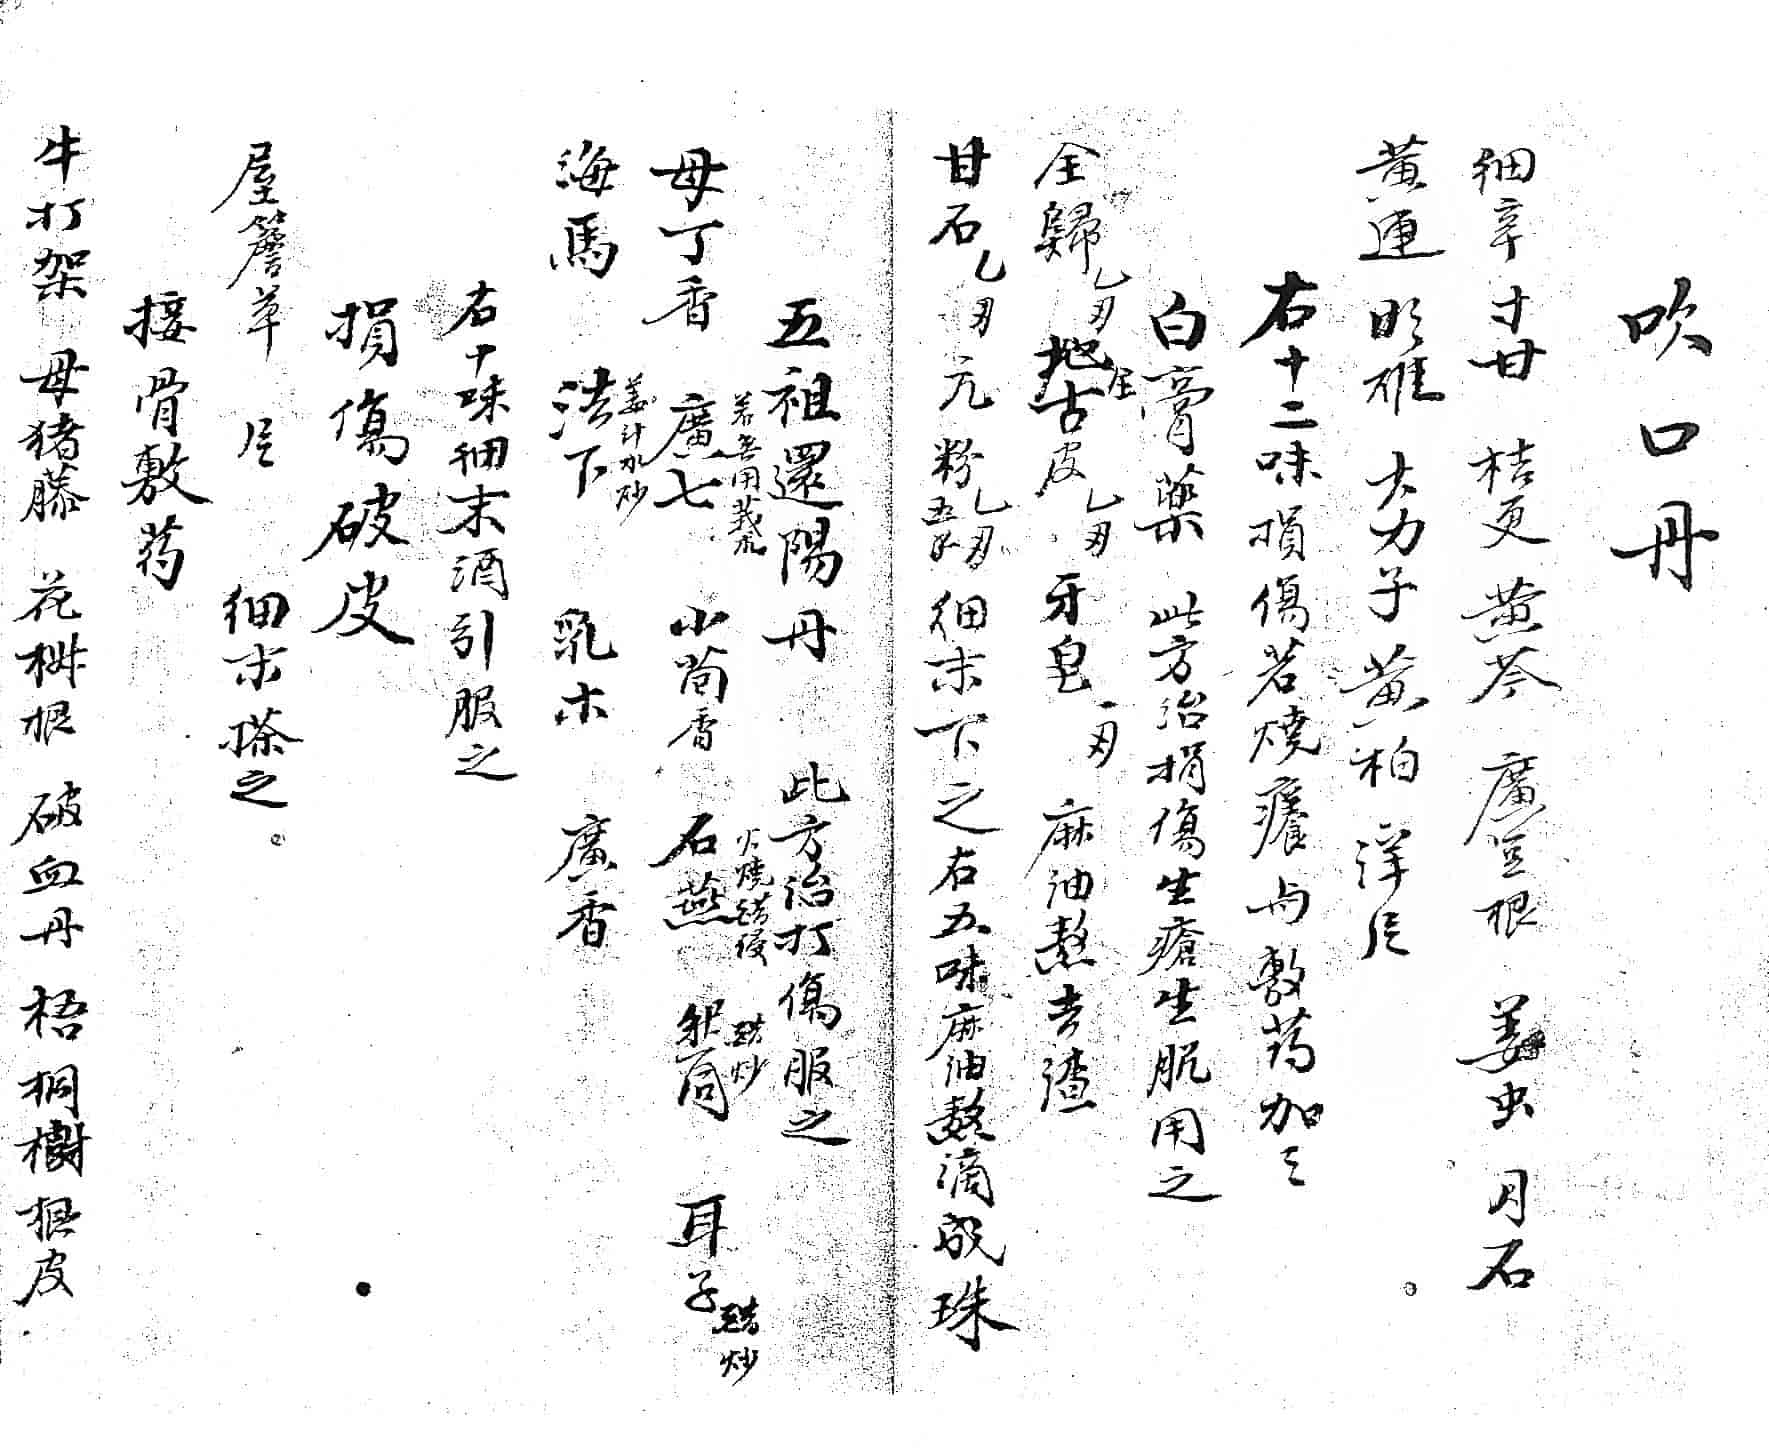 吹口丹
细辛 寸甘 桔更 黄芩 廣豆根 姜虫 月石
黄連 明雄 大力子 黄柏 洋片
右十二味損傷若燒瘡与敷药加之
白膏藥 此方治損傷生瘡生肌用之
全歸乙刄 地古皮乙刄 牙皂一刄 麻油熬去渣
甘石乙刄 元粉乙刄五 细末下之右五味麻油熬滴成珠
五祖還陽丹 此方治打傷服之
母丁香 廣七若無用莪朮 小茴香 石燕火燒醋侵 自然同醋炒 耳子醋炒
海馬 法下姜汁水炒 乳木 廣香
右十味细末酒引服之
損傷破皮
屋簷草 片 细末搽之
接骨敷药
牛打架 母猪藤 花椒根 破血丹 梧桐樹根皮